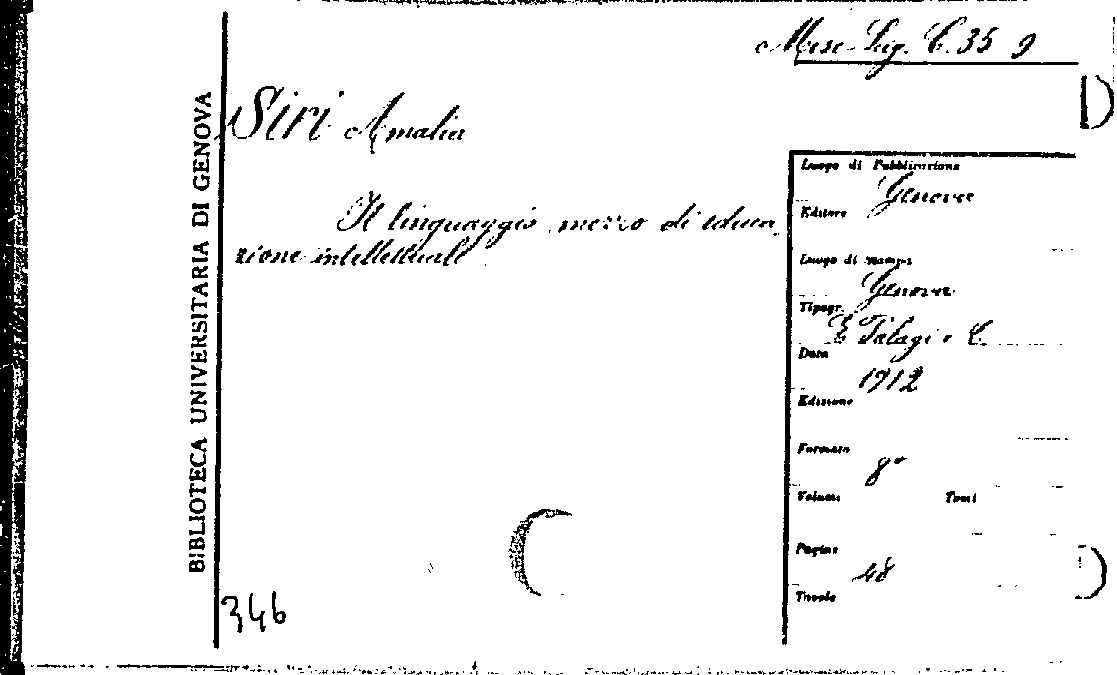 Misc. Lig. C. 35 9
BIBLIOTECA UNIVERSITARIA DI GENOVA
Siri Amalia
Il linguaggio mezzo di educa
zione intellettuale
Luogo di Pubblicazione
Genova
Editore
Luogo di stampa
Genova
Tipogr.
E Palagi e C.
Data
1912
Edizione
Formato
8°
Volumi Tomi
Pagine
48
Tavole
346